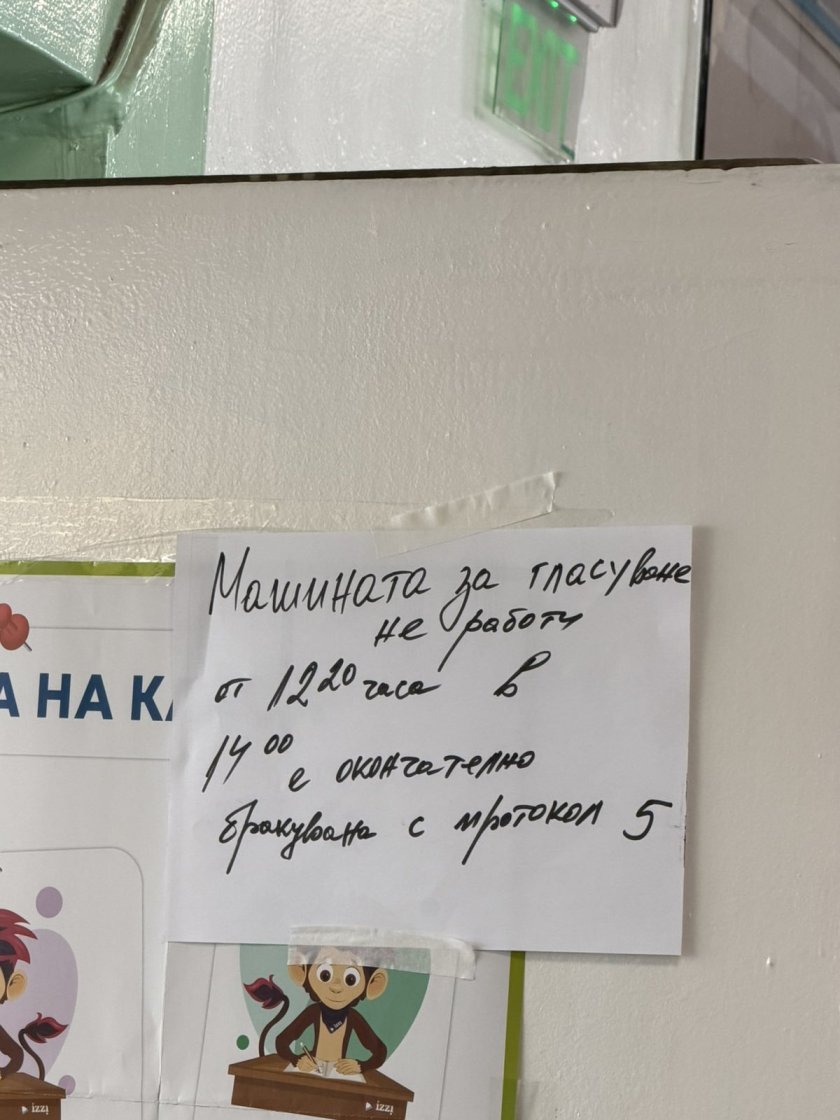 EXIT
Машината за гласуване
не работи
от 12 20 часа в
14 00 е окончателно
бракувана с протокол 5
А НА КА
izzi
izzi